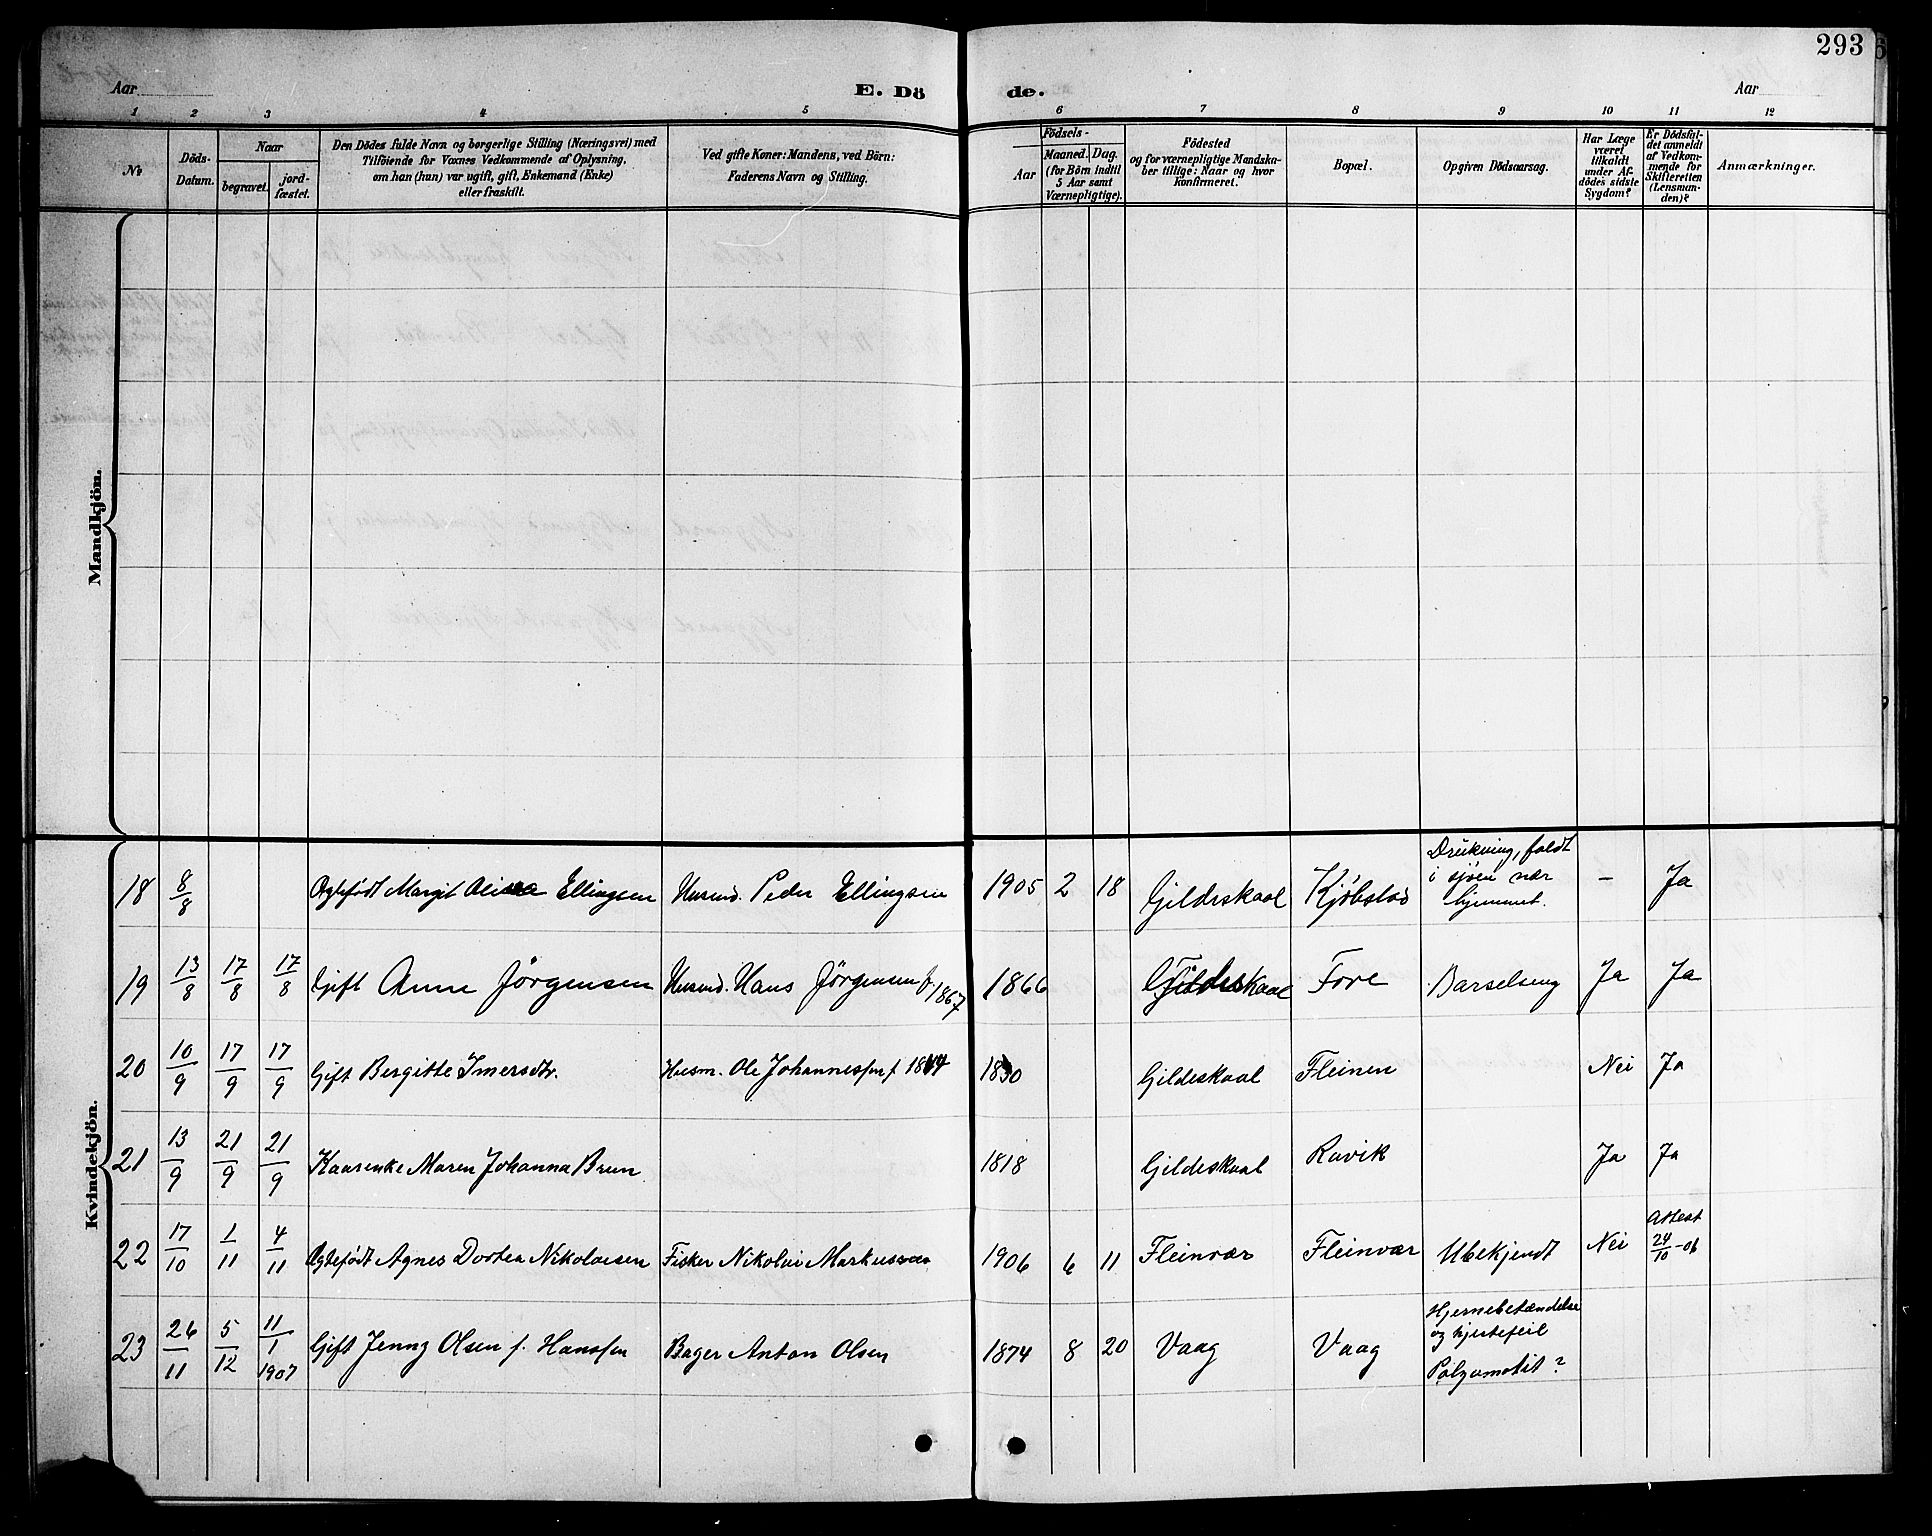 293
Aar
E. Dö
de.
Aar
1 2 3 4 5 6 7 8 9 10 11 12
No
Döds-
Datum.
Naar
begravet.
jord-
fæstet.
Den Dödes fulde Navn og borgerlige Stilling (Næringsvei) med
Tilföiende for Voxnes Vedkommende af Oplysning,
om han (hun) var ugift, gift, Enkemand (Enke)
eller fraskilt.
Ved gifte Koner: Mandens, ved Börn:
Faderens Navn og Stilling.
Födsels-
Aar
Maaned.
Dag.
(for Börn indtil
5 Aar samt
Værnepligtige).
Födested
og for værnepligtige Mandska-
ber tillige: Naar og hvor
konfirmeret.
Bopæl.
Opgiven Dödsaarsag.
Har Læge
været
tilkaldt
under Af-
dödes sidste
Sygdom?
Er Dödsfal-
det anmeldt
af Vedkom-
mende for
Skifteretten
(Lensman-
den)?
Anmærkninger.
Mandkjön.
Kvindekjön.
18 8/8 Ægtefødt Margit Ellingsen Husmd. Peder Ellingsen 1905 2 18 Gildeskaal Kjøbstad Drukning, faldt
i sjøen nær
hjemmet. – Ja
19 13/8 17/8 17/8 Gift Anne Jörgensen Husmd. Hans Jörgensen f. 1867 1866 Gildeskaal Fore Barselseng Ja Ja
20 10/9 17/9 17/9 Gift Bergitte Imersdtr. Husm. Ole Johannessen f 1830 Gildeskaal Fleinen Nei Ja
21 13/9 21/9 21/9 Maren Johanna Brun 1818 Gildeskaal Ravik Ja Ja
22 17/10 1/11 4/11 Ægtefødt Agnes Dortea Nikolaisen Fisker Nikolai Markussen 1906 6 11 Fleinvær Fleinvær Ubekjendt Nei Attest
24/10-06
23 26/11 5/12 11/1 1907 Gift Jenny Olsen f. Hanssen Bager Anton Olsen 1874 8 20 Vaag Vaag Hjernebetændelse
og hjertefeil